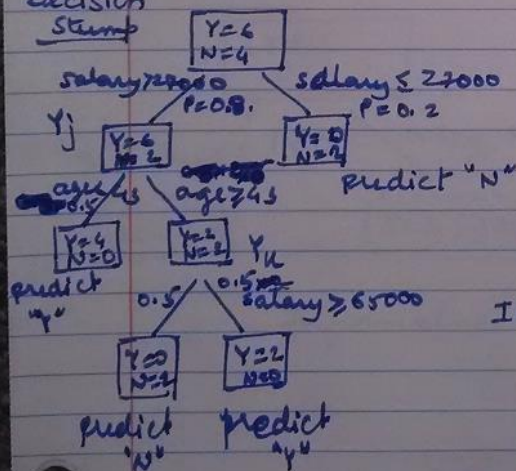 decision
Stump
Y=6
N=4
salary>27000
salary ≤ 27000
P=0.8.
P=0.2
Yj
Y=6
N=2
Y=0
N=2
predict "N"
age<45
age≥45
0.5
Y=4
N=0
Y=2
N=2
Yk
predict
"Y"
0.5
0.5
salary ≥ 65000
I
Y=0
N=2
Y=2
N=0
predict
"N"
predict
"Y"